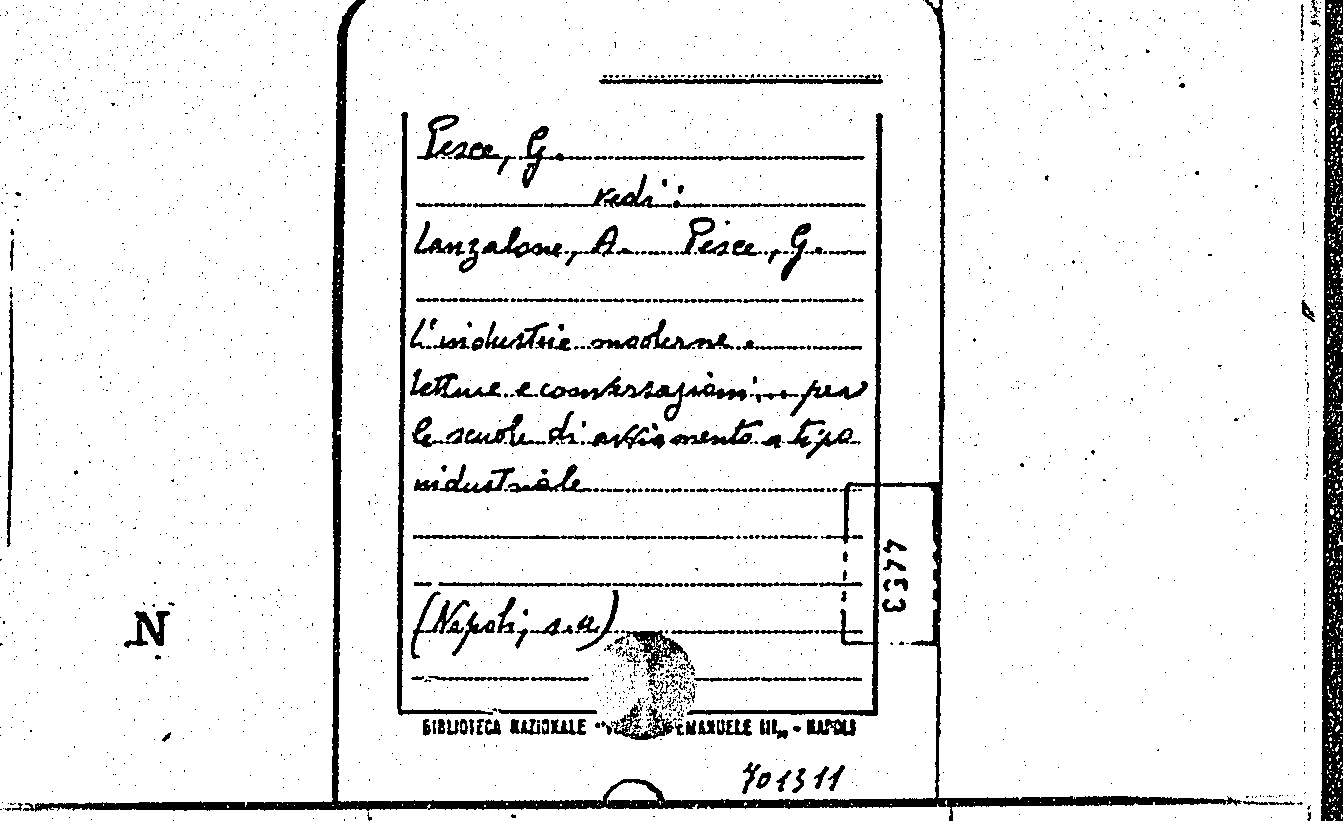 Pesce, G.
vedi:
Lanzalone, A. Pesce, G.
L'industrie moderne.
letture e conversazioni... per
le scuole di avviamento a tipo
industriale
4453
(Napoli, s.a.)
N
BIBLIOTECA NAZIONALE EMANUELE III,, - NAPOLI
701311